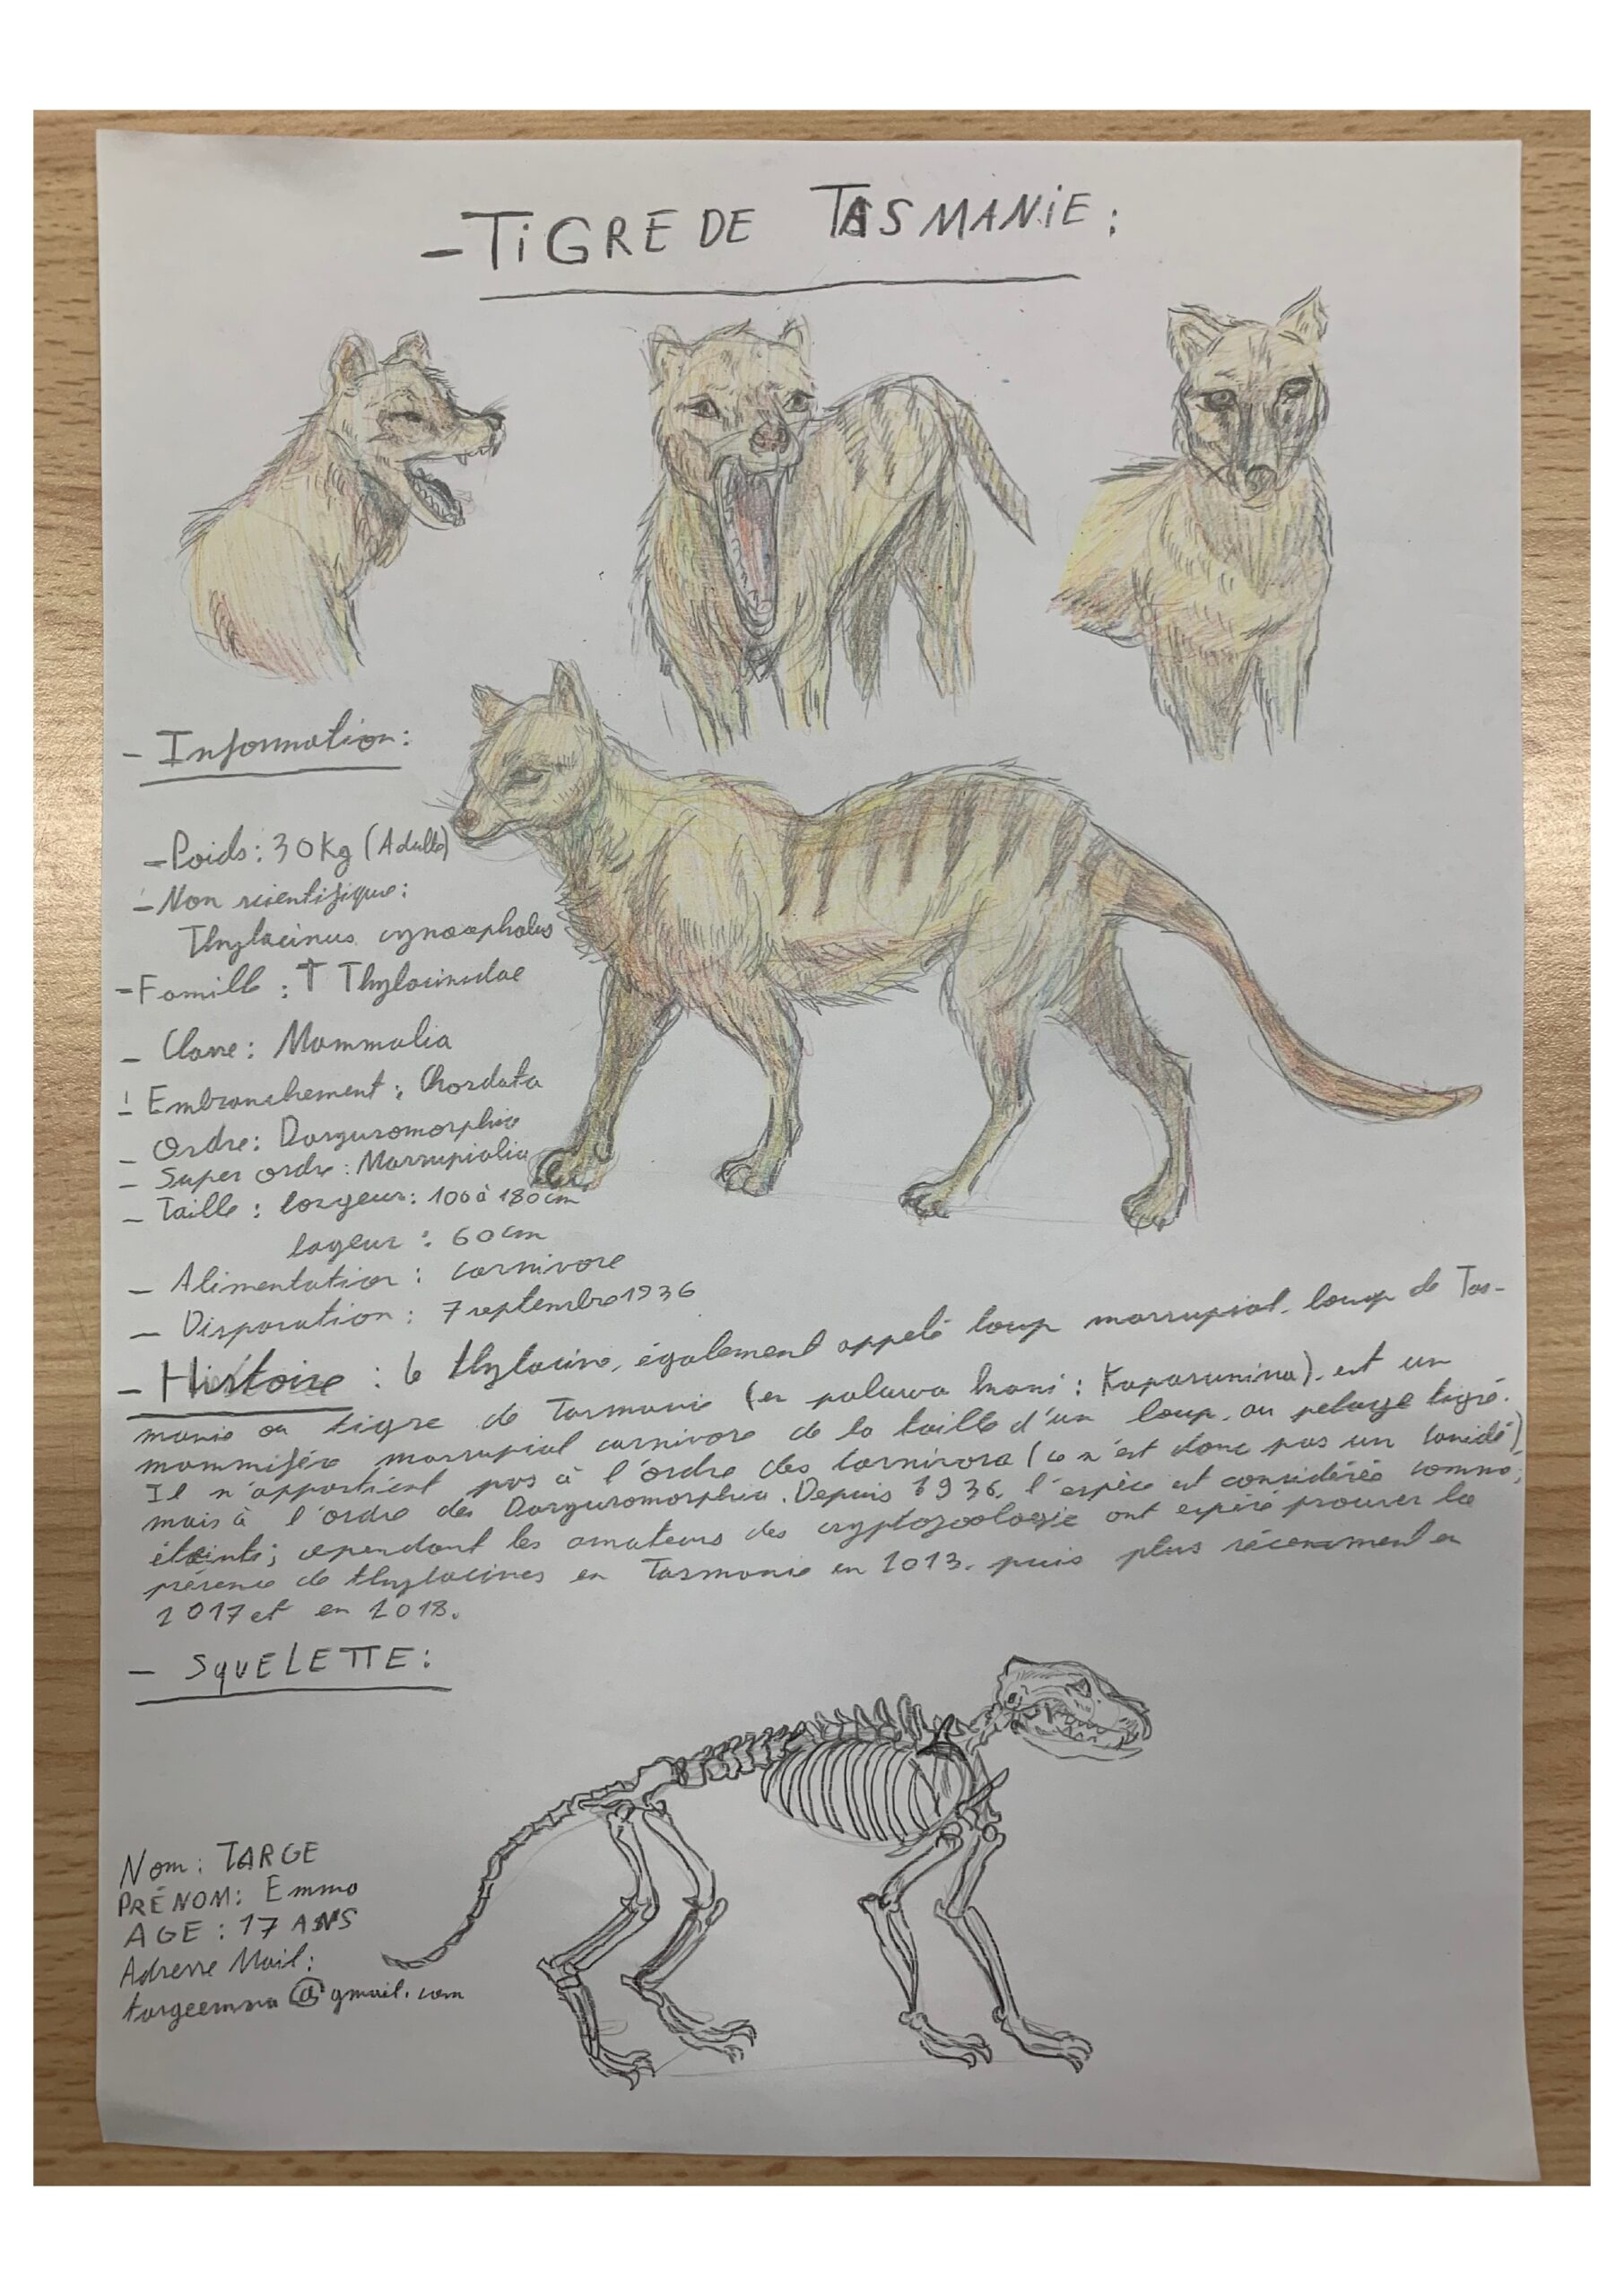 - TiGRE DE TASMANiE :
- Information :
- Poids : 30 Kg (Adulte)
- Non scientifique :
Thylacinus cynocephalus
- Famille : † Thylacinidae
- Classe : Mammalia
- Embranchement : Chordata
- Ordre : Dasyuromorphia
- Super ordre : Marsupialia
- Taille : longeur : 100 à 180 cm
lageur : 60 cm
- Alimentation : carnivore
- Disparation : 7 septembre 1936
- Histoire : le thylacine, également appelé loup marsupial, loup de Tas-
manie ou tigre de Tasmanie (en palawa kani : Kaparunina), est un
mammifère marsupial carnivore de la taille d'un loup, au pelage tigré.
Il n'appartient pas à l'ordre des Carnivora (ce n'est donc pas un canidé),
mais à l'ordre des Dasyuromorphia. Depuis 1936, l'espèce est considérée comme
éteinte ; cependant les amateurs des cryptozoologie ont espéré prouver la
présence de thylacines en Tasmanie en 2013, puis plus récemment en
2017 et en 2018.
- SqUELETTE :
Nom : TARGE
PRÉNOM : Emma
AGE : 17 ANS
Adresse Mail :
targeemma@gmail.com